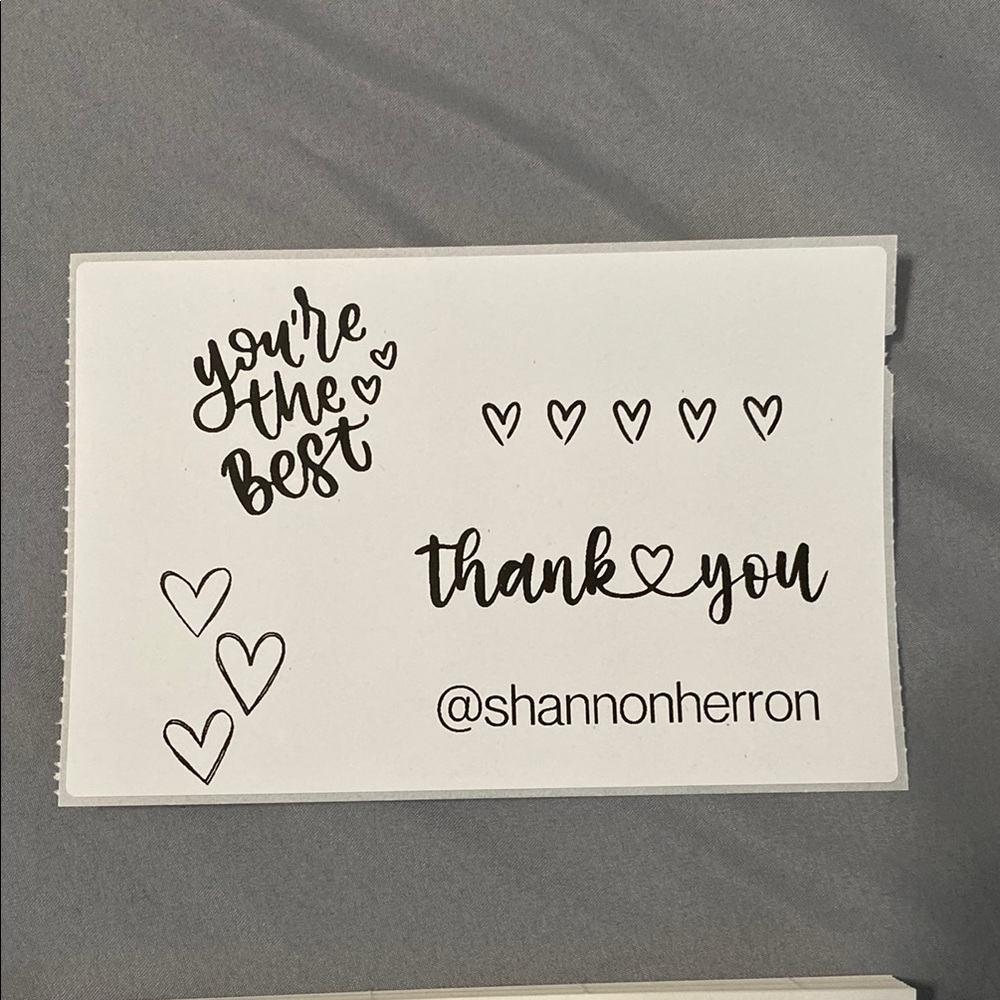 you're
the
Best
thank you
@shannonherron